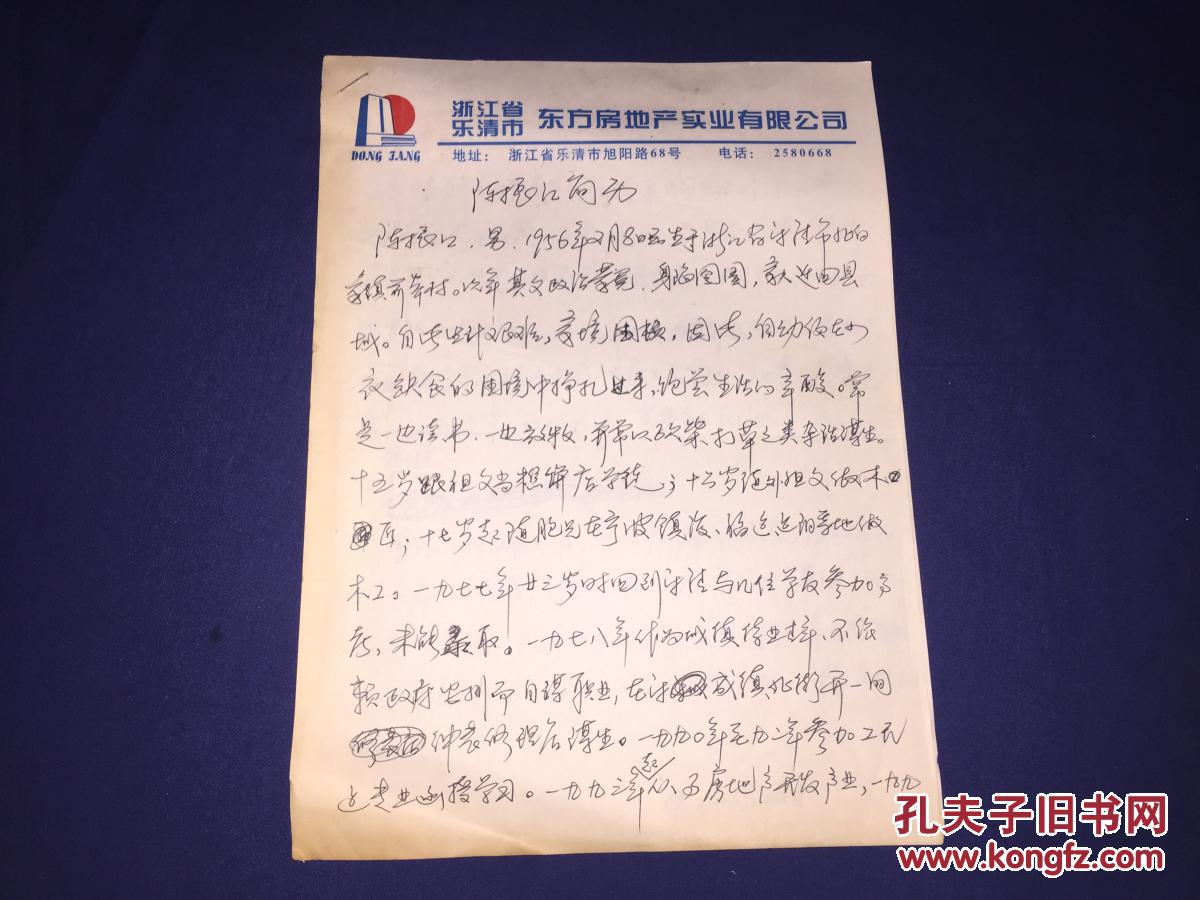 浙江省
乐清市 东方房地产实业有限公司
DONG FANG
地址： 浙江省乐清市旭阳路68号 电话： 2580668
陈振江简历
陈振江.男.1956年2月8日出生于浙江省乐清市北白
象镇前岸村。次年其父政治蒙冤.身陷囹圄,家人迁回县
城。自此生计艰难,家境困顿,因此,自幼便在少
衣缺食的困境中挣扎过来,饱尝生活的辛酸。常
是一边读书.一边放牧,并常以砍柴打草之类杂活谋生。
十五岁跟祖父当糕饼店学徒；十六岁随外祖父做木
匠；十七岁起随胞兄在宁波镇海、福建等地做
木工。一九七七年廿三岁时回到乐清与几位学友参加高
考,未能录取。一九七八年作为城镇待业青年、不依
赖政府安排而自谋职业,在乐成镇北街开一间
钟表修理店谋生。一九九〇年至九二年参加工民
建专业函授学习。一九九三年起从事房地产开发产业,一九九
孔夫子旧书网
www.kongfz.com